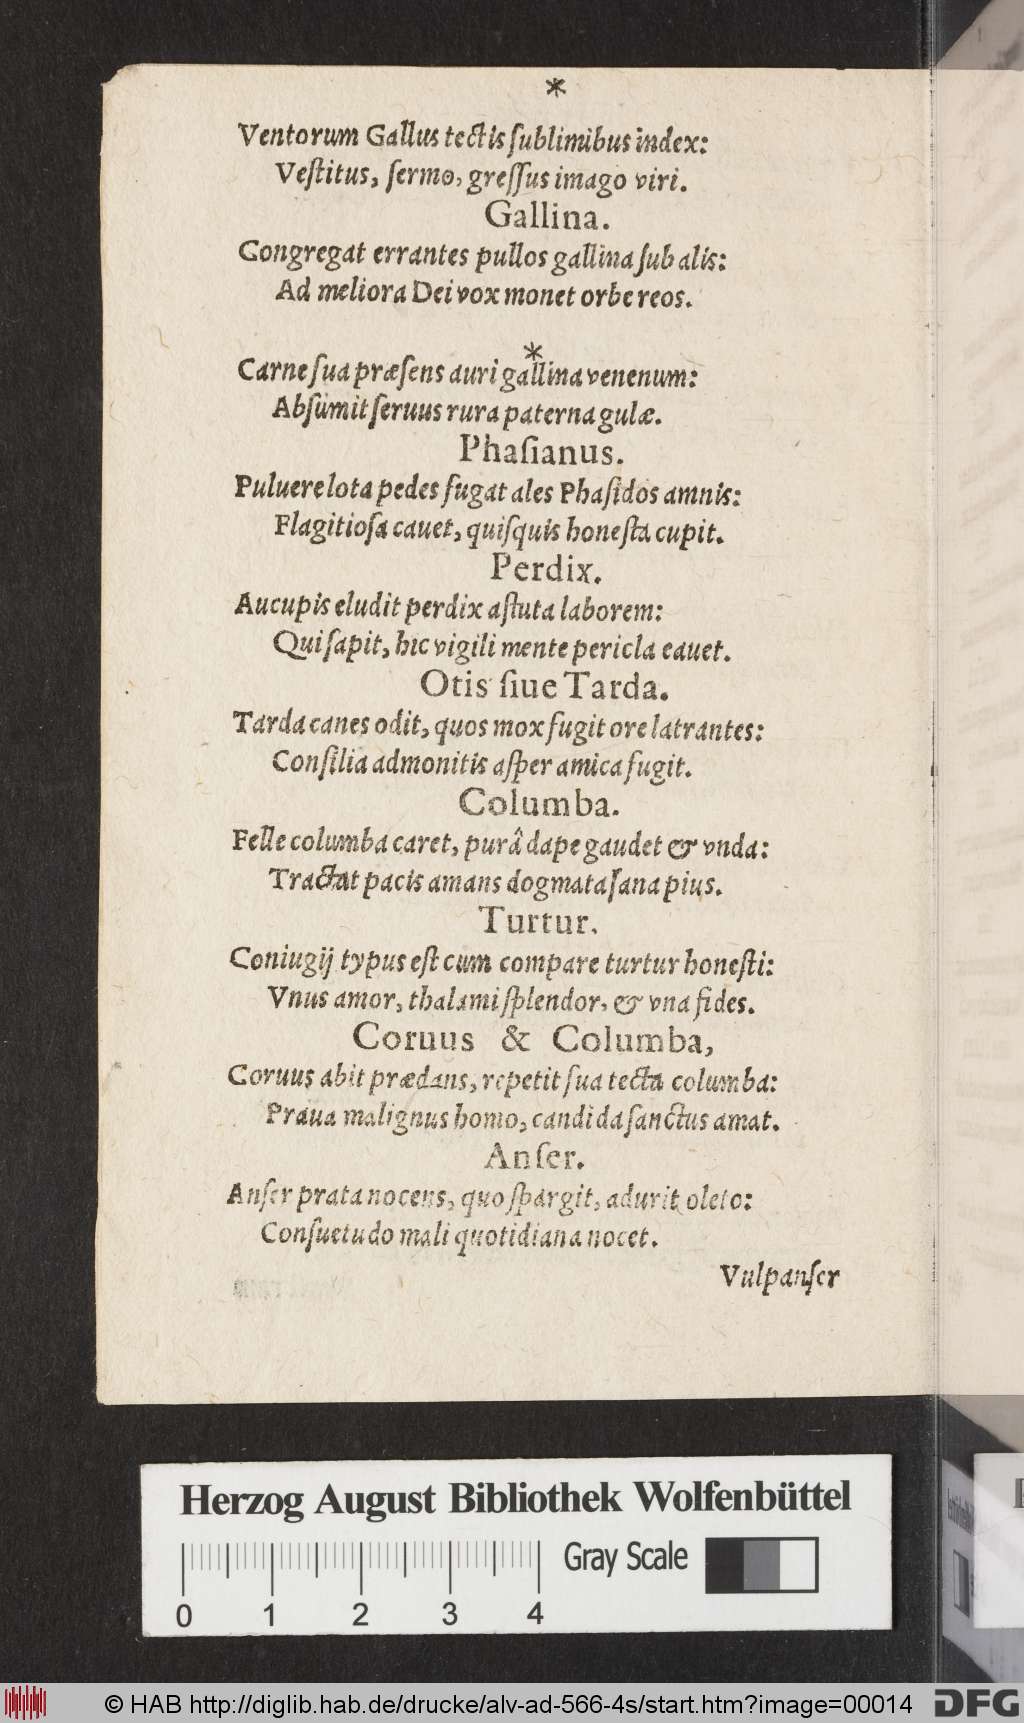 *
Ventorum Gallus tectis ſublimibus index:
Veſtitus, ſermo, greſſus imago viri.
Gallina.
Congregat errantes pullos gallina ſub alis:
Ad meliora Dei vox monet orbe reos.
*
Carne ſua præſens auri gallina venenum:
Abſumit ſeruus rura paterna gulæ.
Phaſianus.
Puluere lota pedes fugat ales Phaſidos amnis:
Flagitioſa cauet, quiſquis honeſta cupit.
Perdix.
Aucupis eludit perdix aſtuta laborem:
Qui ſapit, hic vigili mente pericla eauet.
Otis ſiue Tarda.
Tarda canes odit, quos mox fugit ore latrantes:
Conſilia admonitis aſper amica fugit.
Columba.
Felle columba caret, purâ dape gaudet & vnda:
Tractat pacis amans dogmata ſana pius.
Turtur.
Coniugij typus eſt cum compare turtur honeſti:
Vnus amor, thalami ſplendor, & vna fides.
Coruus & Columba,
Coruus abit prædans, repetit ſua tecta columba:
Praua malignus homo, candida ſanctus amat.
Anſer.
Anſer prata nocens, quo ſpargit, adurit oleto:
Conſuetudo mali quotidiana nocet.
Vulpanſer
Herzog August Bibliothek Wolfenbüttel
0 1 2 3 4
Gray Scale
© HAB http://diglib.hab.de/drucke/alv-ad-566-4s/start.htm?image=00014
DFG